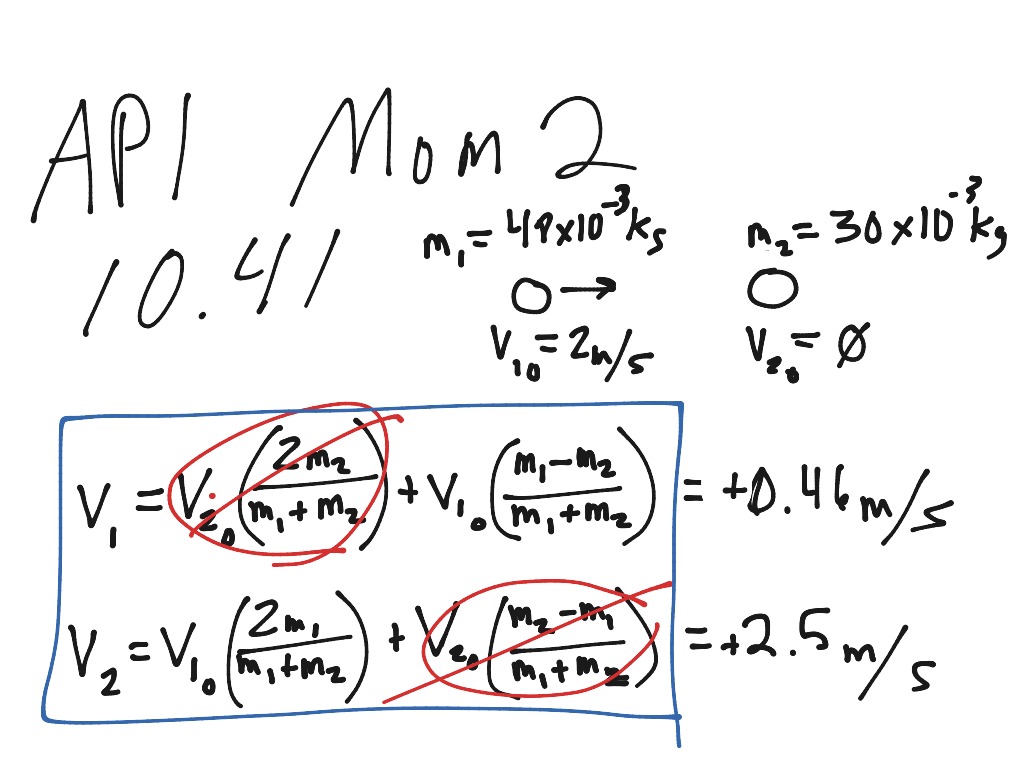 AP1 Mom 2
10.41
m₁ = 48x10⁻³ kg
m₂ = 30x10⁻³ kg
V₁₀ = 2m/s
V₂₀ = Ø
V₁ = V₂₀ (2m₂ / m₁+m₂) + V₁₀ (m₁−m₂ / m₁+m₂) = +0.46 m/s
V₂ = V₁₀ (2m₁ / m₁+m₂) + V₂₀ (m₂−m₁ / m₁+m₂) = +2.5 m/s